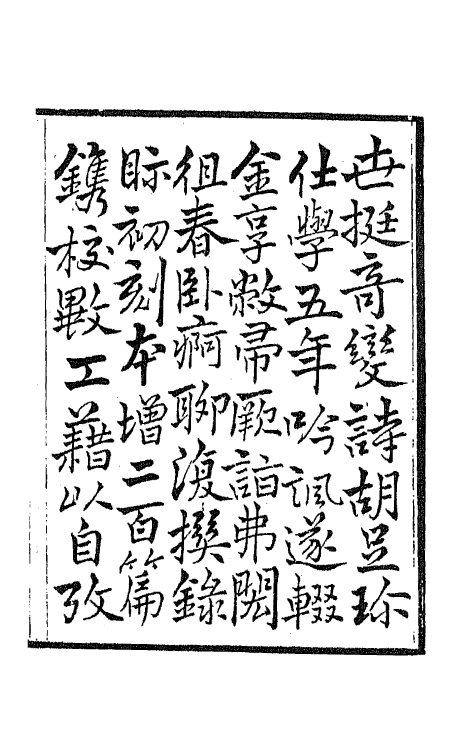 世挺奇變詩胡足珎
仕學五年吟諷遂輟
金享敝帚厥詣弗閎
徂春臥痾聊復撰錄
眎初刻本增二百篇
鐫校㪤工藉以自攷